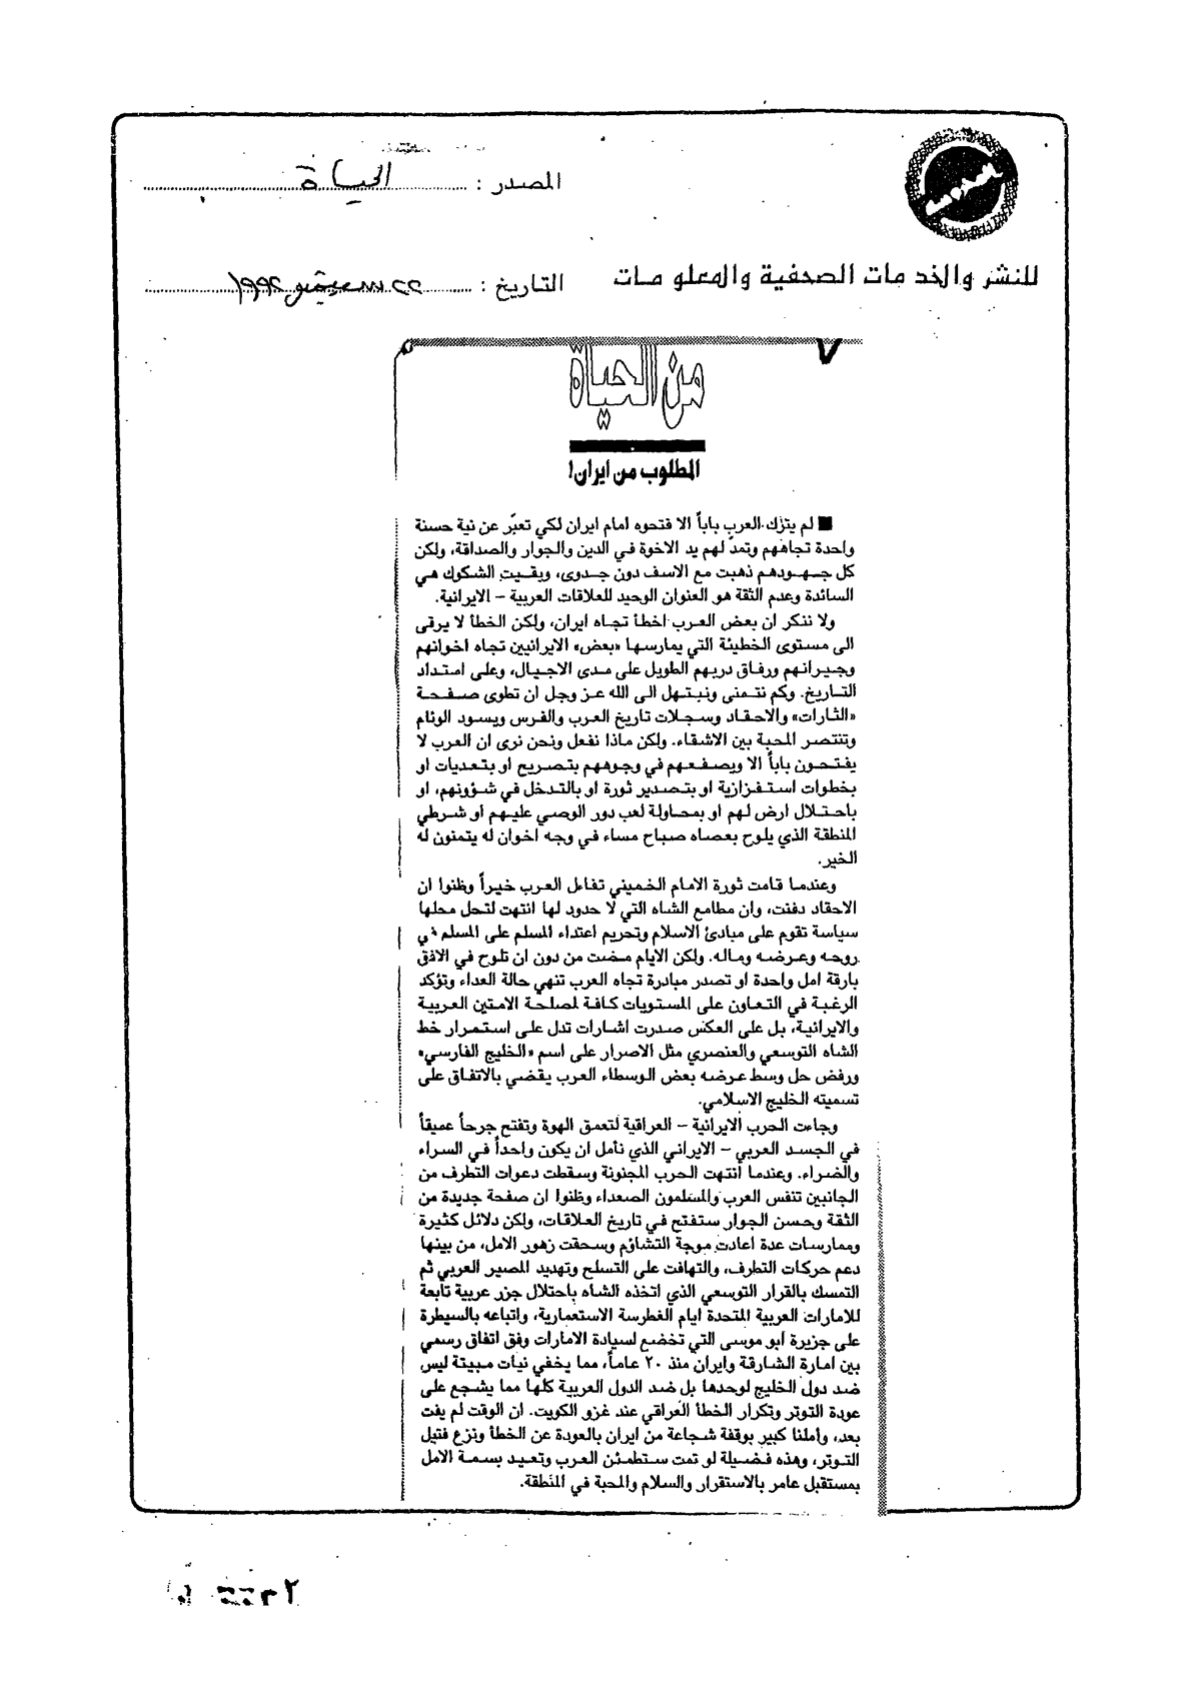 المصدر : الحياة
للنشر والخدمات الصحفية والمعلومات
التاريخ : ٢٢ سبتمبر ١٩٩٢
من الحياة
المطلوب من ايران!
■ لم يترك العرب باباً الا فتحوه امام ايران لكي تعبّر عن نية حسنة
واحدة تجاههم وتمدّ لهم يد الاخوة في الدين والجوار والصداقة، ولكن
كل جهودهم ذهبت مع الاسف دون جدوى، وبقيت الشكوك هي
السائدة وعدم الثقة هو العنوان الوحيد للعلاقات العربية – الايرانية.
ولا ننكر ان بعض العرب اخطأ تجاه ايران، ولكن الخطأ لا يرقى
الى مستوى الخطيئة التي يمارسها «بعض» الايرانيين تجاه اخوانهم
وجيرانهم ورفاق دربهم الطويل على مدى الاجيال، وعلى امتداد
التاريخ. وكم نتمنى ونبتهل الى الله عز وجل ان تطوى صفحة
«الثارات» والاحقاد وسجلات تاريخ العرب والفرس ويسود الوئام
وتنتصر المحبة بين الاشقاء. ولكن ماذا نفعل ونحن نرى ان العرب لا
يفتحون باباً الا ويصفعهم في وجوههم بتصريح او بتعديات او
بخطوات استفزازية او بتصدير ثورة او بالتدخل في شؤونهم، او
باحتلال ارض لهم او بمحاولة لعب دور الوصي عليهم او شرطي
المنطقة الذي يلوح بعصاه صباح مساء في وجه اخوان له يتمنون له
الخير.
وعندما قامت ثورة الامام الخميني تفاءل العرب خيراً وظنوا ان
الاحقاد دفنت، وان مطامع الشاه التي لا حدود لها انتهت لتحل محلها
سياسة تقوم على مبادئ الاسلام وتحريم اعتداء المسلم على المسلم في
روحه وعرضه وماله. ولكن الايام مضت من دون ان تلوح في الافق
بارقة امل واحدة او تصدر مبادرة تجاه العرب تنهي حالة العداء وتؤكد
الرغبة في التعاون على المستويات كافة لمصلحة الامتين العربية
والايرانية، بل على العكس صدرت اشارات تدل على استمرار خط
الشاه التوسعي والعنصري مثل الاصرار على اسم «الخليج الفارسي»
ورفض حل وسط عرضه بعض الوسطاء العرب يقضي بالاتفاق على
تسميته الخليج الاسلامي.
وجاءت الحرب الايرانية – العراقية لتعمق الهوة وتفتح جرحاً عميقاً
في الجسد العربي – الايراني الذي نأمل ان يكون واحداً في السراء
والضراء. وعندما انتهت الحرب المجنونة وسقطت دعوات التطرف من
الجانبين تنفس العرب والمسلمون الصعداء وظنوا ان صفحة جديدة من
الثقة وحسن الجوار ستفتح في تاريخ العلاقات، ولكن دلائل كثيرة
وممارسات عدة اعادت موجة التشاؤم وسحقت زهور الامل، من بينها
دعم حركات التطرف، والتهافت على التسلح وتهديد المصير العربي ثم
التمسك بالقرار التوسعي الذي اتخذه الشاه باحتلال جزر عربية تابعة
للامارات العربية المتحدة ايام الغطرسة الاستعمارية، واتباعه بالسيطرة
على جزيرة ابو موسى التي تخضع لسيادة الامارات وفق اتفاق رسمي
بين امارة الشارقة وايران منذ ٢٠ عاماً، مما يخفي نيات مبيتة ليس
ضد دول الخليج لوحدها بل ضد الدول العربية كلها مما يشجع على
عودة التوتر وتكرار الخطأ العراقي عند غزو الكويت. ان الوقت لم يفت
بعد، وأملنا كبير بوقفة شجاعة من ايران بالعودة عن الخطأ ونزع فتيل
التوتر، وهذه فضيلة لو تمت ستطمئن العرب وتعيد بسمة الامل
بمستقبل عامر بالاستقرار والسلام والمحبة في المنطقة.